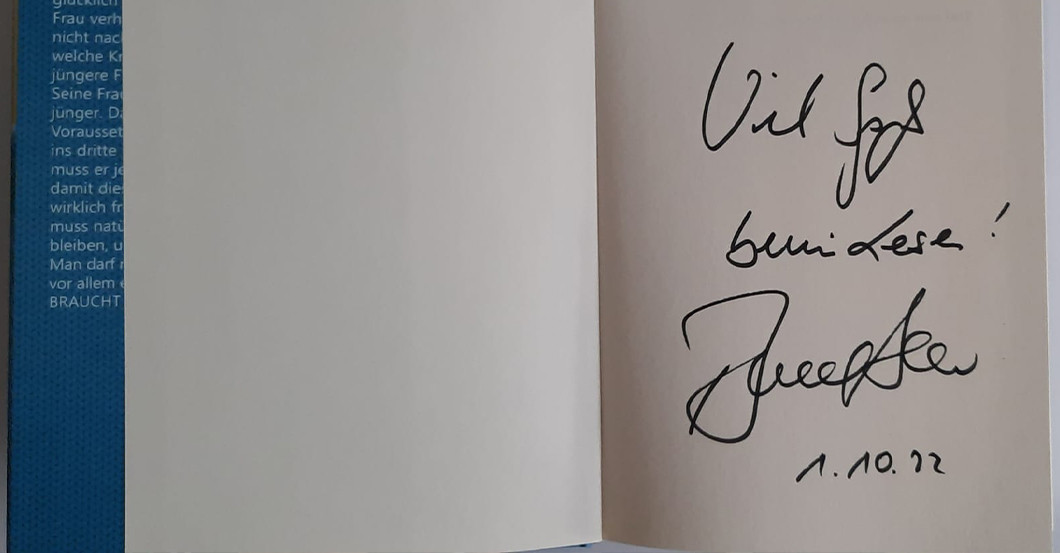 glücklich
Frau verh
nicht nac
welche Kr
jüngere F
Seine Fra
jünger. D
Vorausset
ins dritte
muss er je
damit die
wirklich fr
muss natü
bleiben, u
Man darf
vor allem
BRAUCHT
Viel Spaß
beim Lesen!
1.10.22